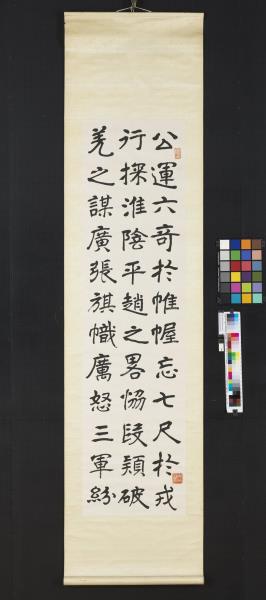 公運六奇於帷幄忘七尺於戎
行探淮陰平趙之畧恊段熲破
羌之謀廣張旗幟厲怒三軍紛